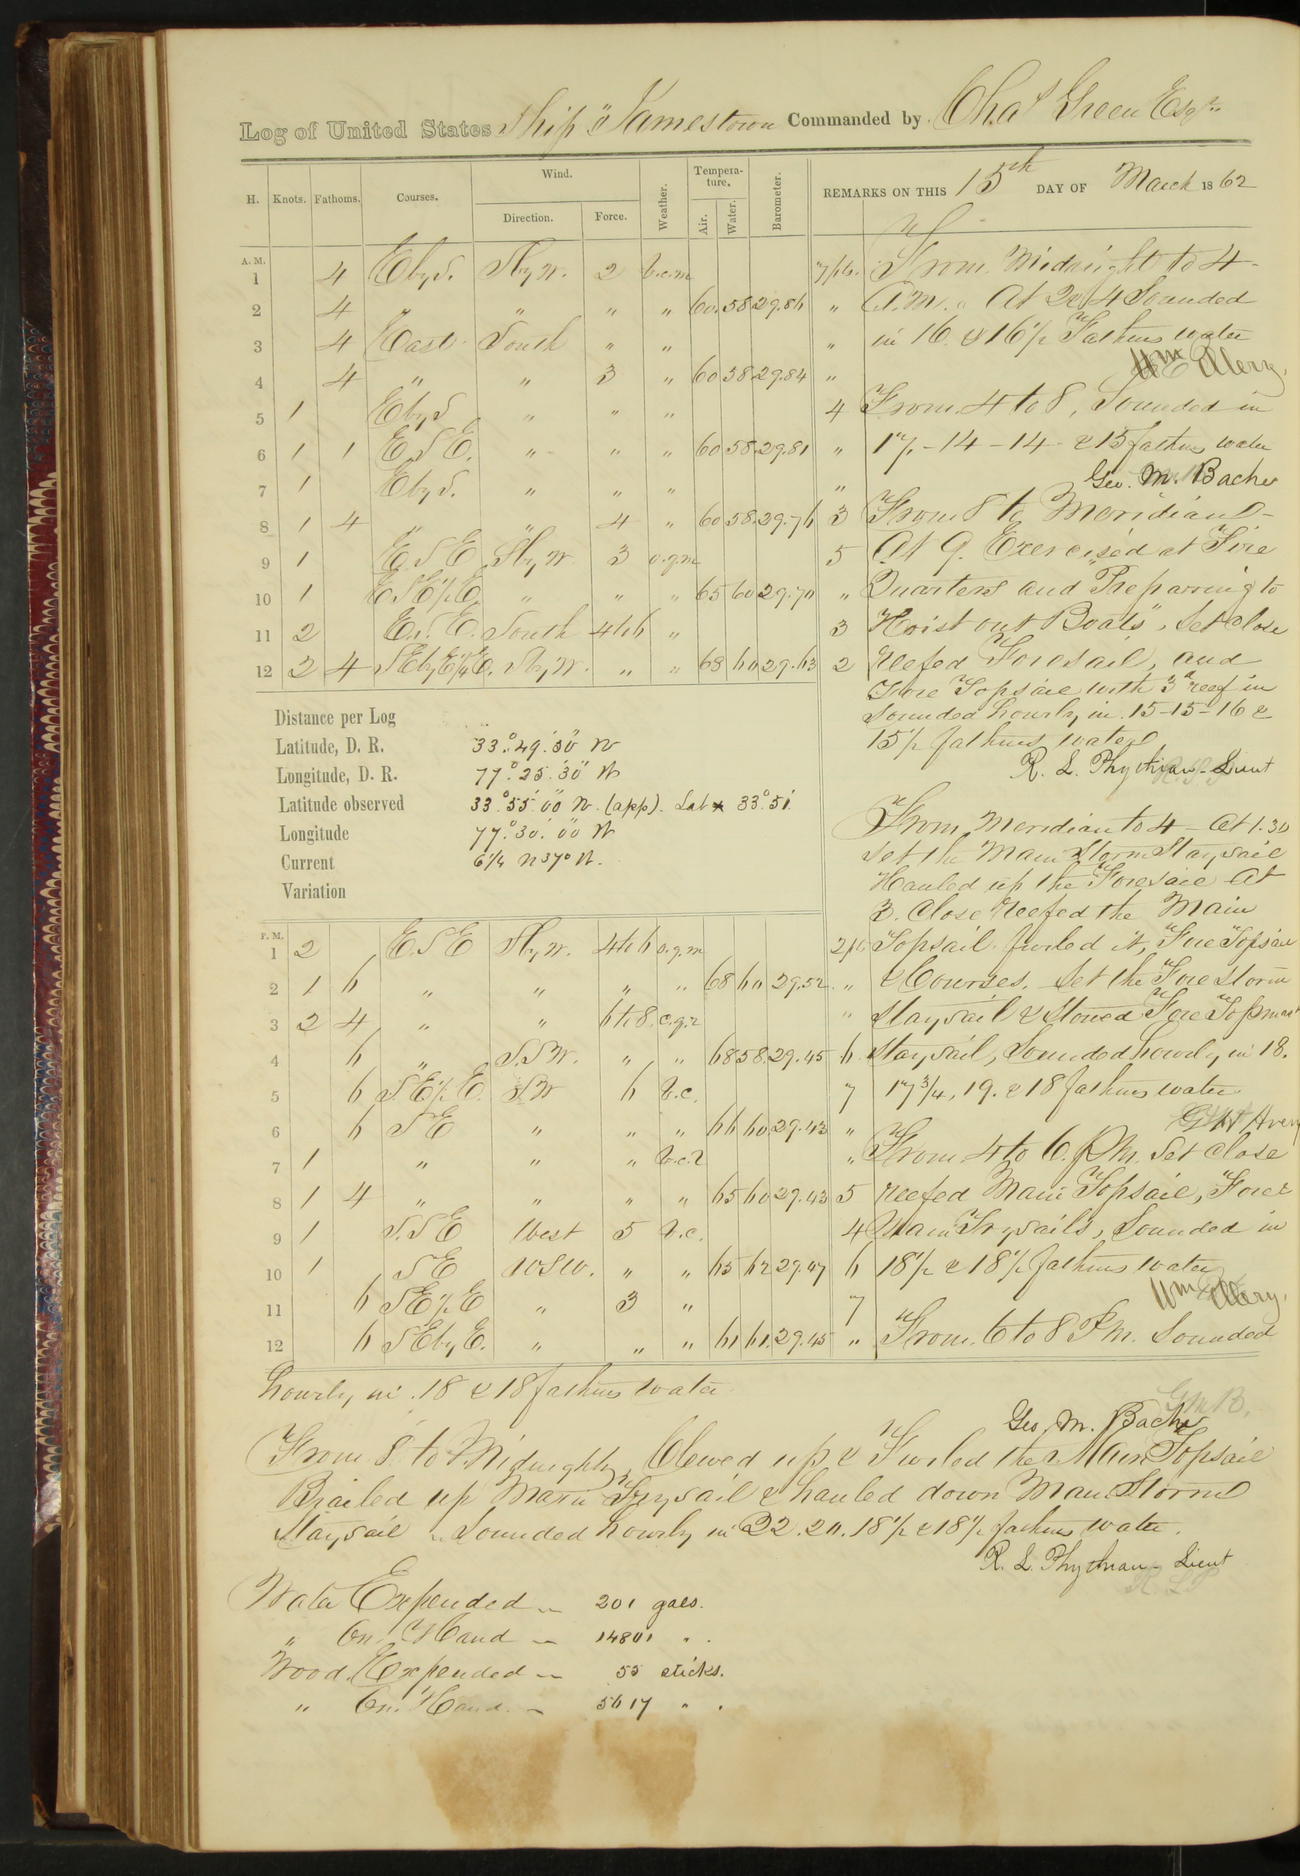 Log of United States Ship "Jamestown Commanded by Chas Green Esqr.
H. Knots. Fathoms. Courses. Wind. Direction. Force. Weather. Temperature. Air. Water. Barometer. REMARKS ON THIS 15th DAY OF March 1862
A.M.
1 4 E by S. S by W. 2 b.c.m From Midnight to 4
2 4 " " " " 60. 58 29.86 " A.M. At 2 & 4 Sounded
3 4 East South " " " in 16 & 16 1/2 Fathms water
4 4 " " 3 " 60 58 29.84 " Wm Ellery.
5 1 E by S " " " 4 From 4 to 8, Sounded in
6 1 1 E S E. " " " 60 58 29.81 " 17 - 14 - 14 - & 15 fathms water
7 1 E by S. " " " " Geo. M. Bache
8 1 4 " " 4 " 60 58 29.76 3 From 8 to Meridian
9 1 E. S E S by W 3 o.g.m 5 At 9. Exercised at Fire
10 1 E S E 1/2 E. " " " 65 60 29.70 " Quarters and "Preparring to
11 2 E. S. E. South 4 to 6 " 3 Hoist out Boats", Set close
12 2 4 S E by E 1/4 E. S by W. " " 68 60 29.63 2 reefed Foresail, and
Fore Topsail with 3d reef in
Sounded hourly in 15-15-16 &
15 1/2 fathms water
R. L. Phythian - Lieut
Distance per Log
Latitude, D. R. 33°.49'.30" N
Longitude, D. R. 77°.25'.30" W
Latitude observed 33°.55'.00" N. (app). Lat 33°.51'
Longitude 77°.30'.00" W
Current 6 1/4 N 37° W.
Variation
From Meridian to 4 - At 1.30
set the Main Storm Staysail
Hauled up the Foresail At
3. Close reefed the Main
P.M.
1 2 E. S E S by W. 4 to 6 o.g.m Topsail furled it, Fore Topsail
2 1 6 " " " " 68 60 29.52 " & Courses. Set the Fore storm
3 2 4 " " 6 to 8. c.q.r " staysail & Stowed Fore Topmast
4 6 " S. S W. " " 68 58 29.45 6 Staysail, Sounded hourly in 18.
5 6 S. E 1/2 E. SW 6 b.c. 7 17 3/4, 19. & 18 fathms water
6 6 S E " " " 66 60 29.43 " G H Avery
7 1 " " " " From 4 to 6. P.M. Set close
8 1 4 " " " " 65 60 29.43 5 reefed Main Topsail, Fore &
9 1 S. S E West 5 b.c. 4 Main Trysails, Sounded in
10 1 S E W S W. " " 65 62 29.47 6 18 1/2 & 18 1/2 fathms water
11 6 S E 1/2 E " 3 " 7 Wm Ellery.
12 6 S E by E. " " " 61 61 29.45 " From. 6 to 8 P.M. Sounded
hourly in 18 & 18 fathms water
Geo. M. Bache
From 8 to Midnight, Clewed up & Furled the Main Topsail
Brailed up Main Trysail & hauled down Main Storm
Staysail Sounded hourly in 22. 20. 18 1/2 & 18 1/2 fathms water.
R. L. Phythian - Lieut
Water Expended 201 gals.
" On Hand 14801 "
Wood Expended 55 sticks.
" On Hand 5617 "